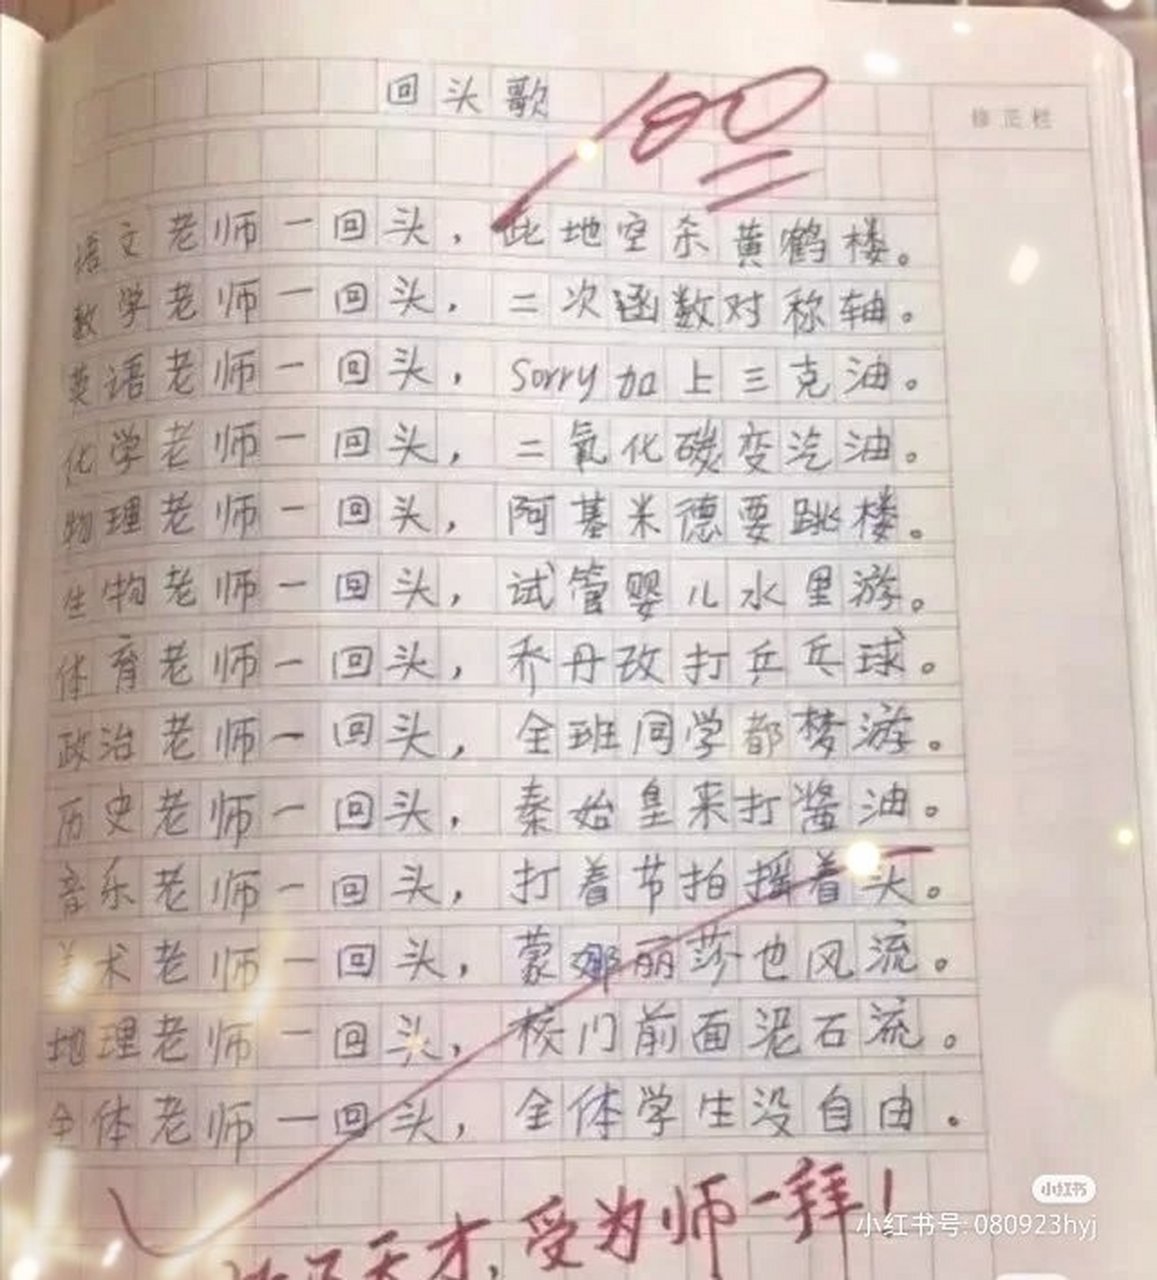 回头歌
100
修正栏
语文老师一回头，此地空杀黄鹤楼。
数学老师一回头，二次函数对称轴。
英语老师一回头，Sorry加上三克油。
化学老师一回头，二氧化碳变汽油。
物理老师一回头，阿基米德要跳楼。
生物老师一回头，试管婴儿水里游。
体育老师一回头，乔丹改打乒乓球。
政治老师一回头，全班同学都梦游。
历史老师一回头，秦始皇来打酱油。
音乐老师一回头，打着节拍摇着头。
美术老师一回头，蒙娜丽莎也风流。
地理老师一回头，校门前面泥石流。
全体老师一回头，全体学生没自由.
天才，受为师一拜！
小红书
小红书号: 080923hyj